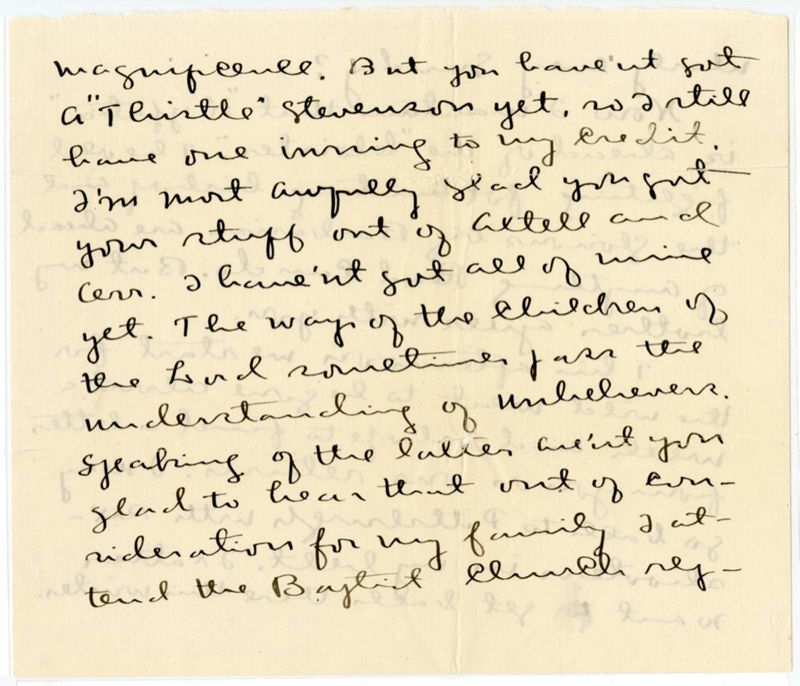 magnificence. But you have'nt got
a "Thistle" Stevenson yet, so I still
have one inning to my credit.
I'm most awfully glad you got
your stuff out of Axtell and
Cerr. I have'nt got all of mine
yet. The ways of the Children of
the Lord sometimes pass the
understanding of unbelievers.
Speaking of the latter are'nt you
glad to hear that out of con-
sideration for my family I at-
tend the Baptist Church reg-